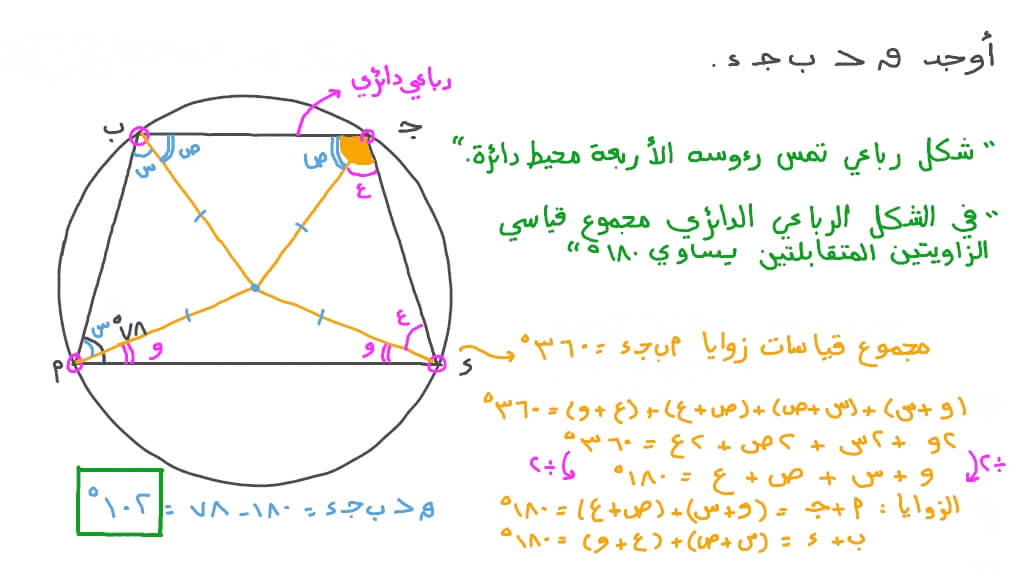 أوجد ق∠ ب ج ء.
رباعي دائري
ب
ج
س
ص
ص
ع
"شكل رباعي تمس رءوسه الأربعة محيط دائرة."
"في الشكل الرباعي الدائري مجموع قياسي
الزاويتين المتقابلتين يساوي ١٨٠°"
س
٧٨°
و
و
ع
م
ء
مجموع قياسات زوايا م ب ج ء = ٣٦٠°
(و + س) + (س + ص) + (ص + ع) + (ع + و) = ٣٦٠°
٢و + ٢س + ٢ص + ٢ع = ٣٦٠°
÷٢
÷٢
و + س + ص + ع = ١٨٠°
الزوايا: م + ج = (و + س) + (ص + ع) = ١٨٠°
ب + ء = (س + ص) + (ع + و) = ١٨٠°
ق∠ ب ج ء = ١٨٠ - ٧٨ = ١٠٢°